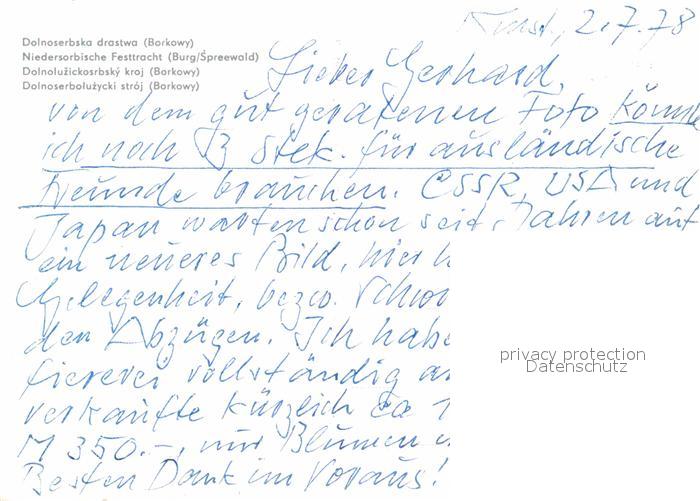 2.7.78
Dolnoserbska drastwa (Borkowy)
Niedersorbische Festtracht (Burg/Spreewald)
Dolnolužickosrbský kroj (Borkowy)
Dolnoserbołużycki strój (Borkowy)
Lieber Gerhard,
von dem gut geratenen Foto könnte
ich noch 3 Stck. für ausländische
Freunde brauchen. CSSR, USA und
Japan warten schon seit Jahren auf
ein neueres Bild, hier
Gelegenheit, bezw.
den Abzügen. Ich habe
vollständig
verkaufte kürzlich ca
M 350.-, nur Blumen
Besten Dank im Voraus!
privacy protection
Datenschutz